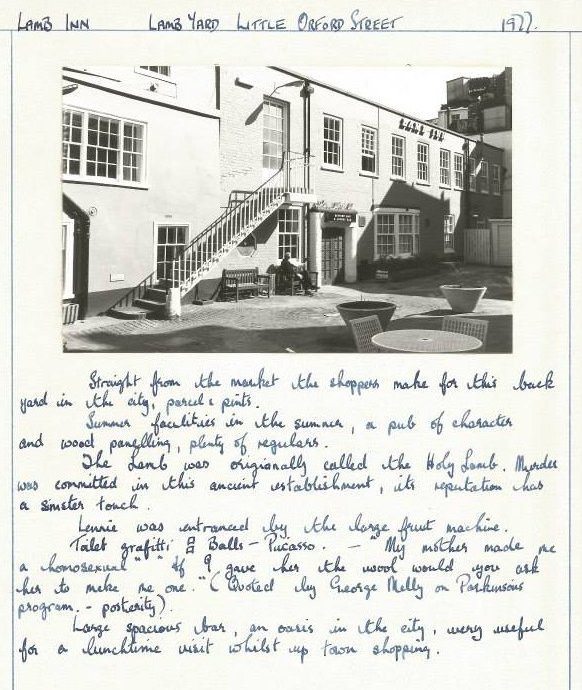 LAMB INN LAMB YARD LITTLE ORFORD STREET 1977.
LAMB INN
Straight from the market the shoppers make for this back
yard in the city, parcel & pints.
Summer facilities in the summer, a pub of character
and wood panelling, plenty of regulars.
The Lamb was origionally called the Holy Lamb. Murder
was committed in this ancient establishment, its reputation has
a sinister touch.
Lennie was entranced by the large fruit machine.
Toilet grafitti Balls - Picasso. - "My mother made me
a homosexual" "If I gave her the wool would you ask
her to make me one." (Quoted by George Melly on Parkinsons
program. - posterity).
Large spacious bar, an oasis in the city, very useful
for a lunchtime visit whilst up town shopping.